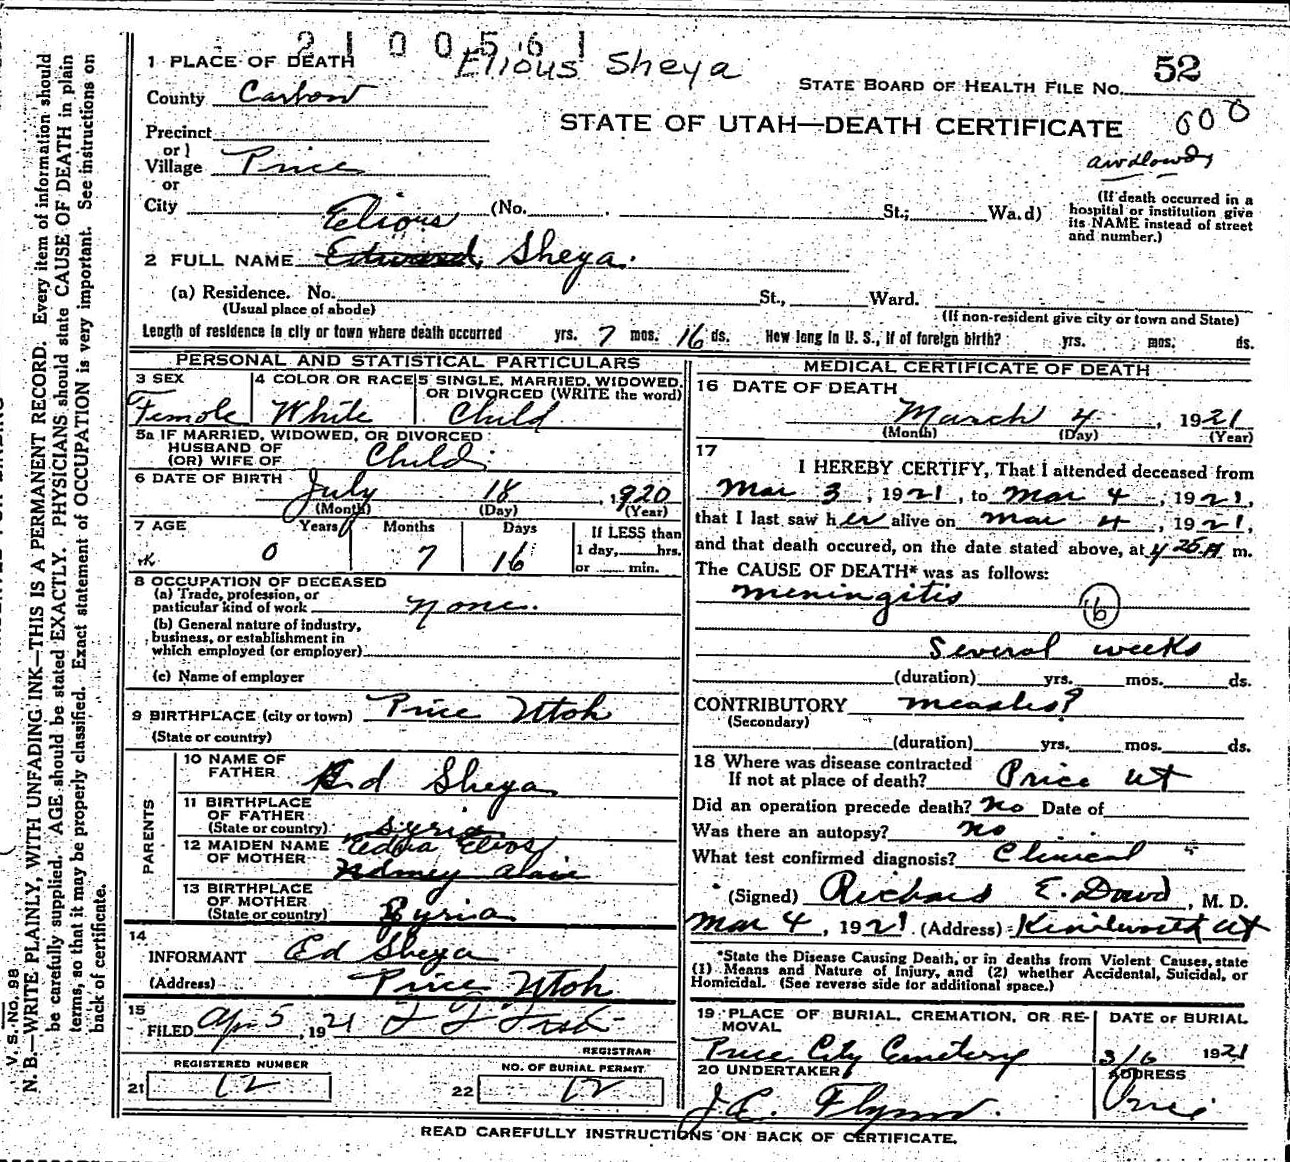 2100561
Elious Sheya
1 PLACE OF DEATH
STATE BOARD OF HEALTH FILE NO. 52
County Carbon
STATE OF UTAH—DEATH CERTIFICATE
600
Precinct
or
Village Price
or
City (No. St.; Wa.d)
(If death occurred in a
hospital or institution give
its NAME instead of street
and number.)
Elious
2 FULL NAME Edward Sheya.
(a) Residence. No. St., Ward.
(Usual place of abode) (If non-resident give city or town and State)
Length of residence in city or town where death occurred yrs. 7 mos. 16 ds. How long in U. S., if of foreign birth? yrs. mos. ds.
PERSONAL AND STATISTICAL PARTICULARS
3 SEX 4 COLOR OR RACE 5 SINGLE, MARRIED, WIDOWED,
OR DIVORCED (WRITE the word)
Female White Child
5a IF MARRIED, WIDOWED, OR DIVORCED
HUSBAND OF
(OR) WIFE OF Child
6 DATE OF BIRTH
July 18, 1920
(Month) (Day) (Year)
7 AGE Years Months Days If LESS than
1 day, hrs.
or min.
0 7 16
8 OCCUPATION OF DECEASED
(a) Trade, profession, or
particular kind of work none.
(b) General nature of industry,
business, or establishment in
which employed (or employer)
(c) Name of employer
9 BIRTHPLACE (city or town) Price Utah
(State or country)
PARENTS
10 NAME OF
FATHER Ed Sheya
11 BIRTHPLACE
OF FATHER
(State or country) Syria
12 MAIDEN NAME
OF MOTHER
13 BIRTHPLACE
OF MOTHER
(State or country) Syria
14
INFORMANT Ed Sheya
(Address) Price Utah
15
FILED Apr 5, 1921
REGISTRAR
REGISTERED NUMBER NO. OF BURIAL PERMIT
21 12 22 12
MEDICAL CERTIFICATE OF DEATH
16 DATE OF DEATH
March 4, 1921
(Month) (Day) (Year)
17
I HEREBY CERTIFY, That I attended deceased from
Mar 3, 1921, to Mar 4, 1921,
that I last saw her alive on Mar 4, 1921,
and that death occured, on the date stated above, at 4 25 A m.
The CAUSE OF DEATH* was as follows:
Meningitis
Several weeks
(duration) yrs. mos. ds.
CONTRIBUTORY measles?
(Secondary)
(duration) yrs. mos. ds.
18 Where was disease contracted
If not at place of death? Price Ut
Did an operation precede death? No Date of
Was there an autopsy? No
What test confirmed diagnosis? Clinical
(Signed) Richard E. Dowd, M. D.
Mar 4, 1921 (Address) Kenilworth Ut
*State the Disease Causing Death, or in deaths from Violent Causes, state
(1) Means and Nature of Injury, and (2) whether Accidental, Suicidal, or
Homicidal. (See reverse side for additional space.)
19 PLACE OF BURIAL, CREMATION, OR RE-
MOVAL
DATE OF BURIAL
Price City Cemetery 3/6 1921
20 UNDERTAKER ADDRESS
J. E. Flynn. Price
READ CAREFULLY INSTRUCTIONS ON BACK OF CERTIFICATE.
V. S. No. 98
N. B.—WRITE PLAINLY, WITH UNFADING INK—THIS IS A PERMANENT RECORD. Every item of information should
be carefully supplied. AGE should be stated EXACTLY. PHYSICIANS should state CAUSE OF DEATH in plain
terms, so that it may be properly classified. Exact statement of OCCUPATION is very important. See instructions on
back of certificate.